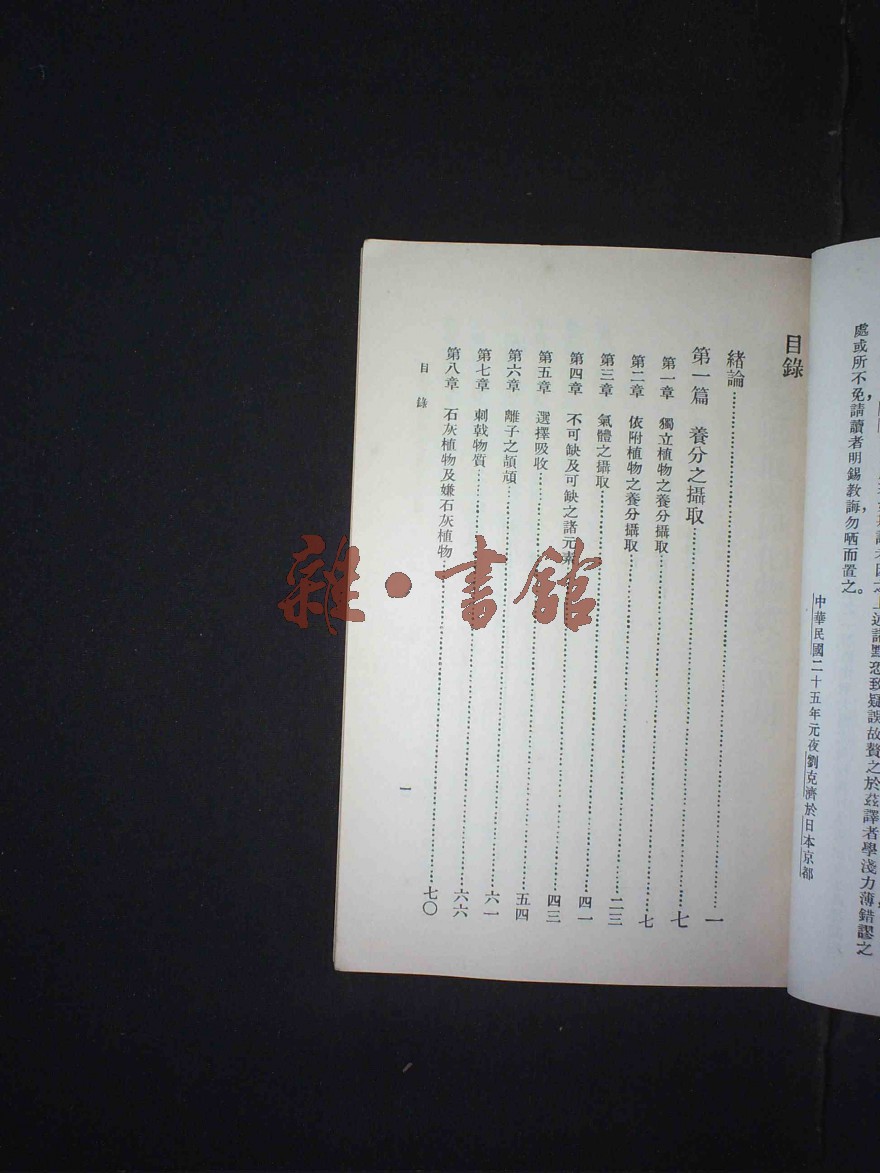 恐致疑誤故贅之於茲譯者學淺力薄錯謬之
處或所不免,請讀者明錫教誨,勿哂而置之。
中華民國二十五年元夜劉克濟於日本京都
目錄
緒論……一
第一篇 養分之攝取……七
第一章 獨立植物之養分攝取……七
第二章 依附植物之養分攝取……二三
第三章 氣體之攝取……四一
第四章 不可缺及可缺之諸元素……四三
第五章 選擇吸收……五四
第六章 離子之頡頏……六一
第七章 刺戟物質……六六
第八章 石灰植物及嫌石灰植物……七〇
目錄
一
雜·書館